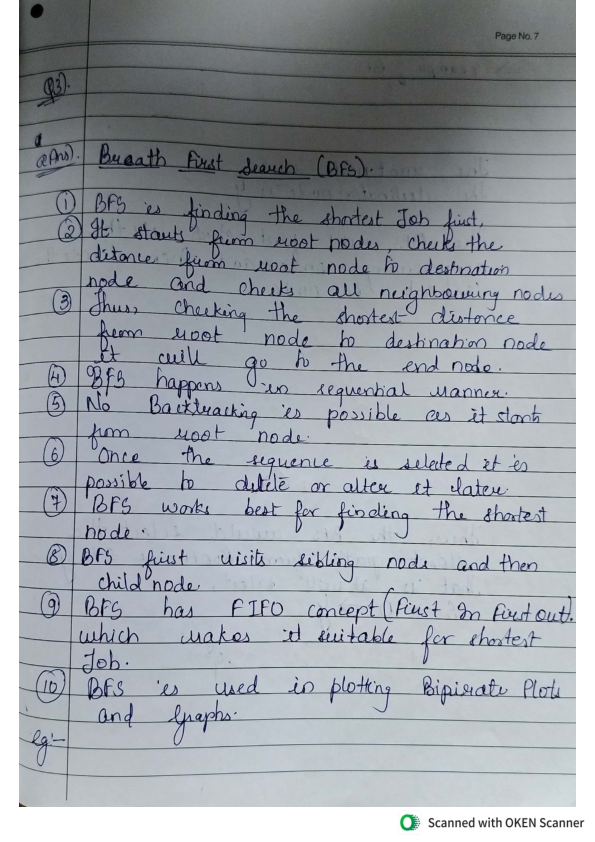 Page No. 7
Q3).
a Ans). Breath First Search (BFS).
① BFS is finding the shortest Job first.
② It starts from root nodes, checks the
ditance from root node to destination
node and checks all neighbouring nodes
③ Thus, checking the shortest distance
from root node to destination node
it will go to the end node.
④ BFS happens in sequential manner.
⑤ No Backtracking is possible as it starts
from root node.
⑥ Once the sequence is selected it is
possible to delete or alter it later.
⑦ BFS works best for finding the shortest
node.
⑧ BFS first visits sibling node and then
child node
⑨ BFS has FIFO concept (First In First out).
which makes it suitable for shortest
Job.
⑩ BFS is used in plotting Bipirate Plots
and Graphs.
eg:-
Scanned with OKEN Scanner